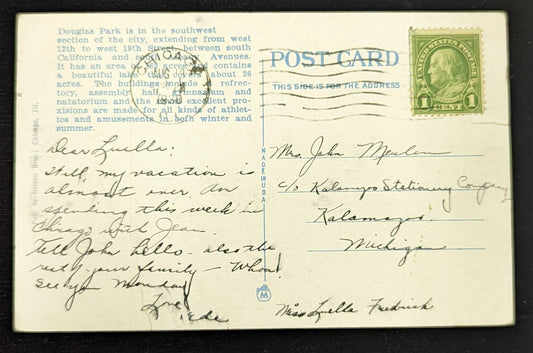 Douglas Park is in the southwest
section of the city, extending from west
12th to west 19th Street between south
California and south Avenues.
It has an area of acres and contains
a beautiful lake that covers about 26
acres. The buildings include a refec-
tory, assembly hall, gymnasium and
natatorium and the most excellent pro-
visions are made for all kinds of athlet-
ics and amusements in both winter and
summer.
CHICAGO
AUG
1930
POST CARD
THIS SIDE IS FOR THE ADDRESS
UNITED STATES POSTAGE
1 CENT 1
MADE IN U.S.A.
M
Chicago, Ill.
Dear Luella:
Still my vacation is
almost over. Am
spending this week in
Chicago with Jean.
Tell John hello - also the
rest of your family - Whoa!
See you Monday
Love
Mrs. John
c/o Kalamazoo Stationery Company
Kalamazoo
Michigan
Miss Luella Fredrick